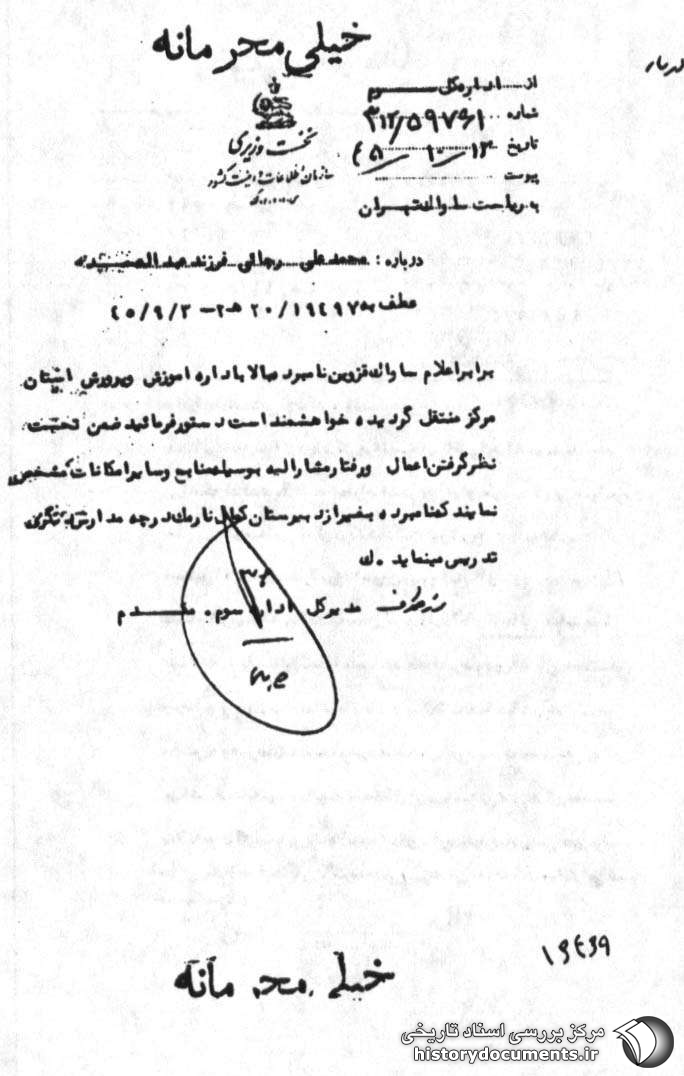 خیلی محرمانه
از اداره کل سوم
شماره ۳۱۲/۵۹۷۶۱
تاریخ ۱۴-۱۰-۴۵
پیوست
نخست وزیری
سازمان اطلاعات و امنیت کشور
به ریاست ساواک تهران
درباره : محمد علی رجائی فرزند عبدالصمد
عطف به ۱۹۴۹۷/ ۲۰ هـ ۲ - ۴۵/۹/۳
برابر اعلام ساواک قزوین نامبرده بالا باداره آموزش و پرورش استان
مرکز منتقل گردیده خواهشمند است دستور فرمائید ضمن تحت
نظر گرفتن اعمال و رفتار مشارالیه بوسیله منابع و سایر امکانات مشخص
نمایند که نامبرده بغیر از دبیرستان کمال نارمک در چه مدارس دیگری
تدریس مینماید . ک
مدیر کل اداره سوم . مقدم
از طرف
خیلی محرمانه
مرکز بررسی اسناد تاریخی
historydocuments.ir